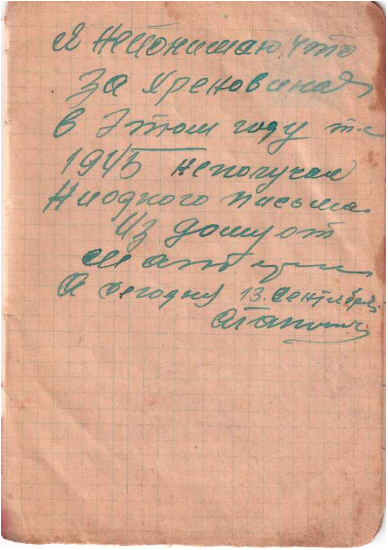 Я непонимаю, что
за хреновина
в этом году т.е
1945 неполучал
Ниодного письма
Из дому от
матери
А сегодня 13. сентября.